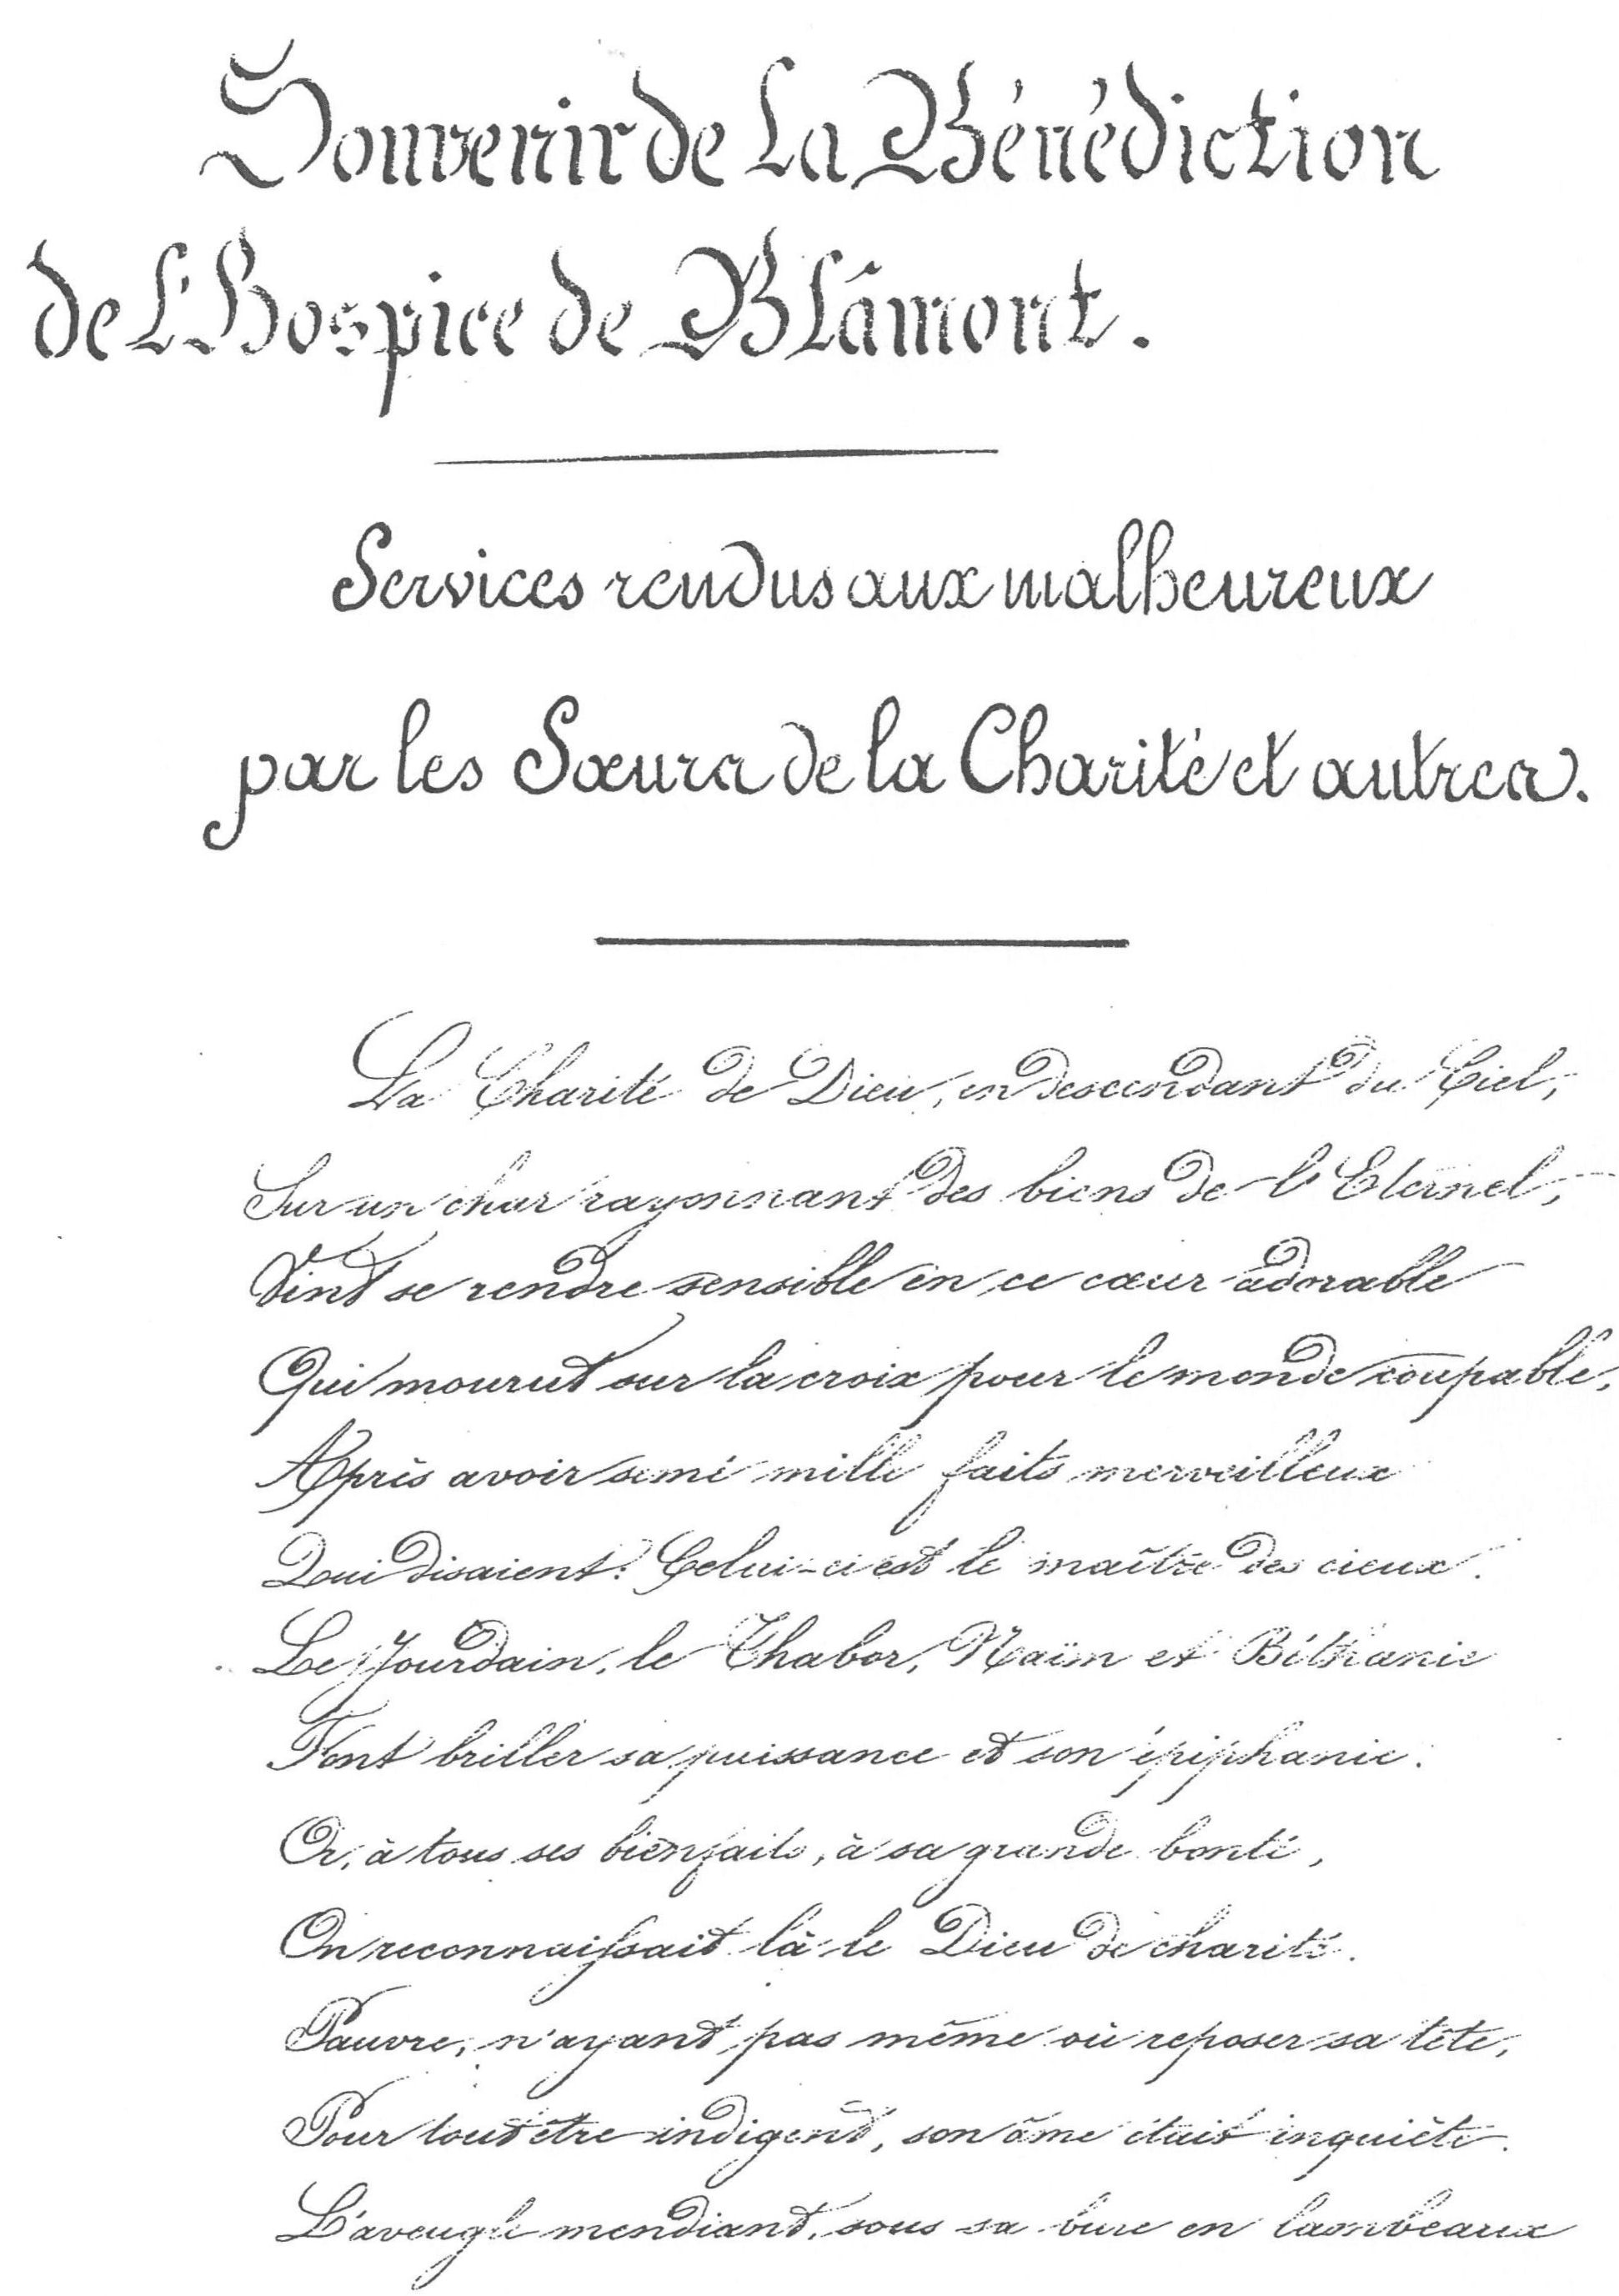 Souvenir de La Bénédiction
de L'Hospice de Blâmont.
Services rendus aux malheureux
par les Sœurs de la Charité et autres.
La Charité de Dieu, en descendant du Ciel,
Sur un char rayonnant des biens de l'Eternel,
Vint se rendre sensible en ce cœur adorable
Qui mourut sur la croix pour le monde coupable,
Après avoir semé mille faits merveilleux
Qui disaient: Celui-ci est le maître des cieux.
Le Jourdain, le Thabor, Naïm et Béthanie
Font briller sa puissance et son épiphanie.
Or, à tous ses bienfaits, à sa grande bonté,
On reconnaissait là le Dieu de charité.
Pauvre, n'ayant pas même où reposer sa tête,
Pour tout être indigent, son âme était inquiète.
L'aveugle mendiant, sous sa bure en lambeaux